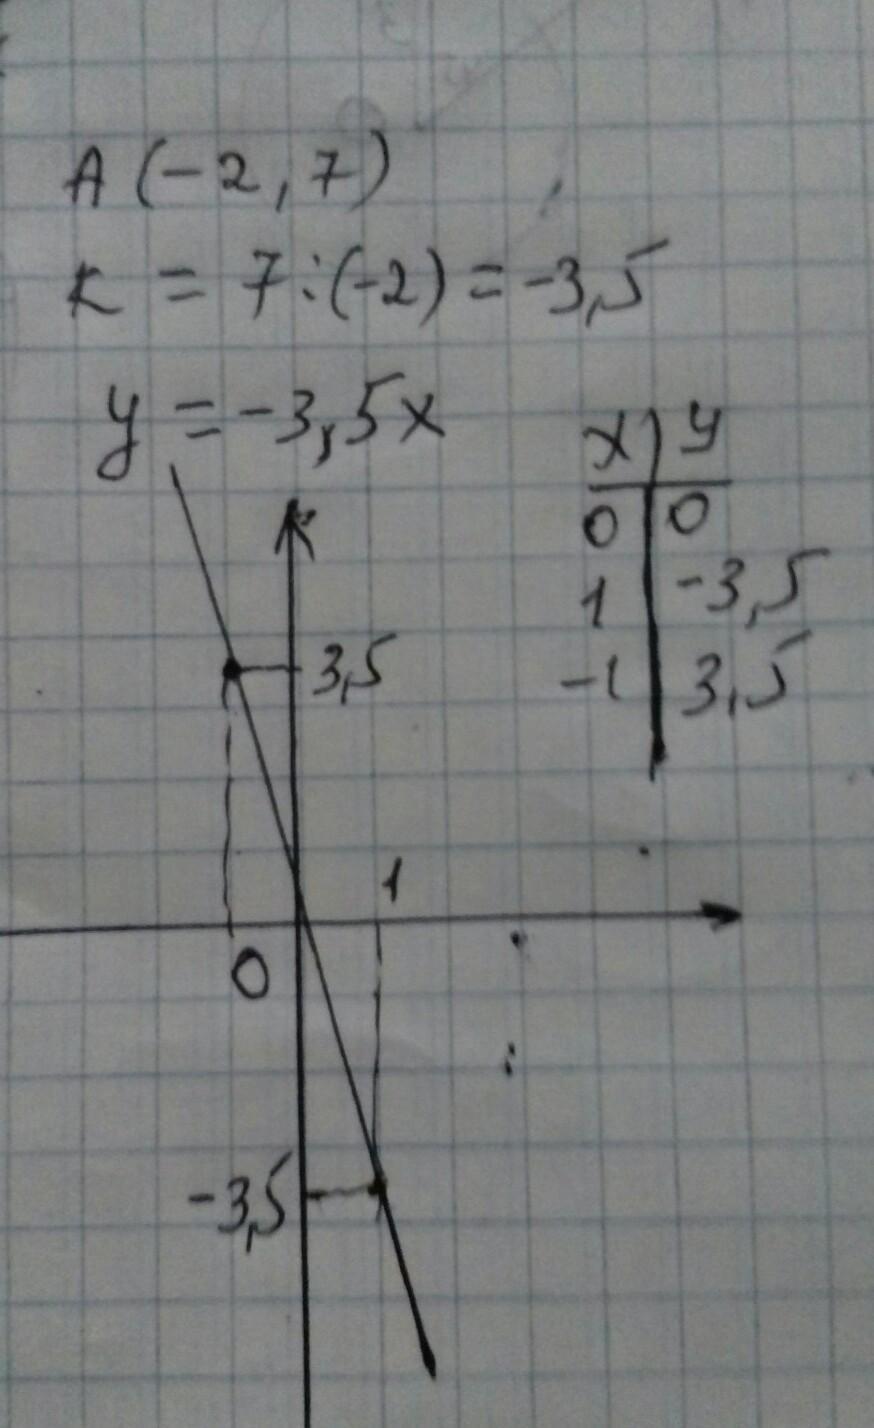 A (-2, 7)
K = 7 : (-2) = -3,5
y = -3,5x
x | y
0 | 0
1 | -3,5
-1 | 3,5
3,5
1
0
-3,5